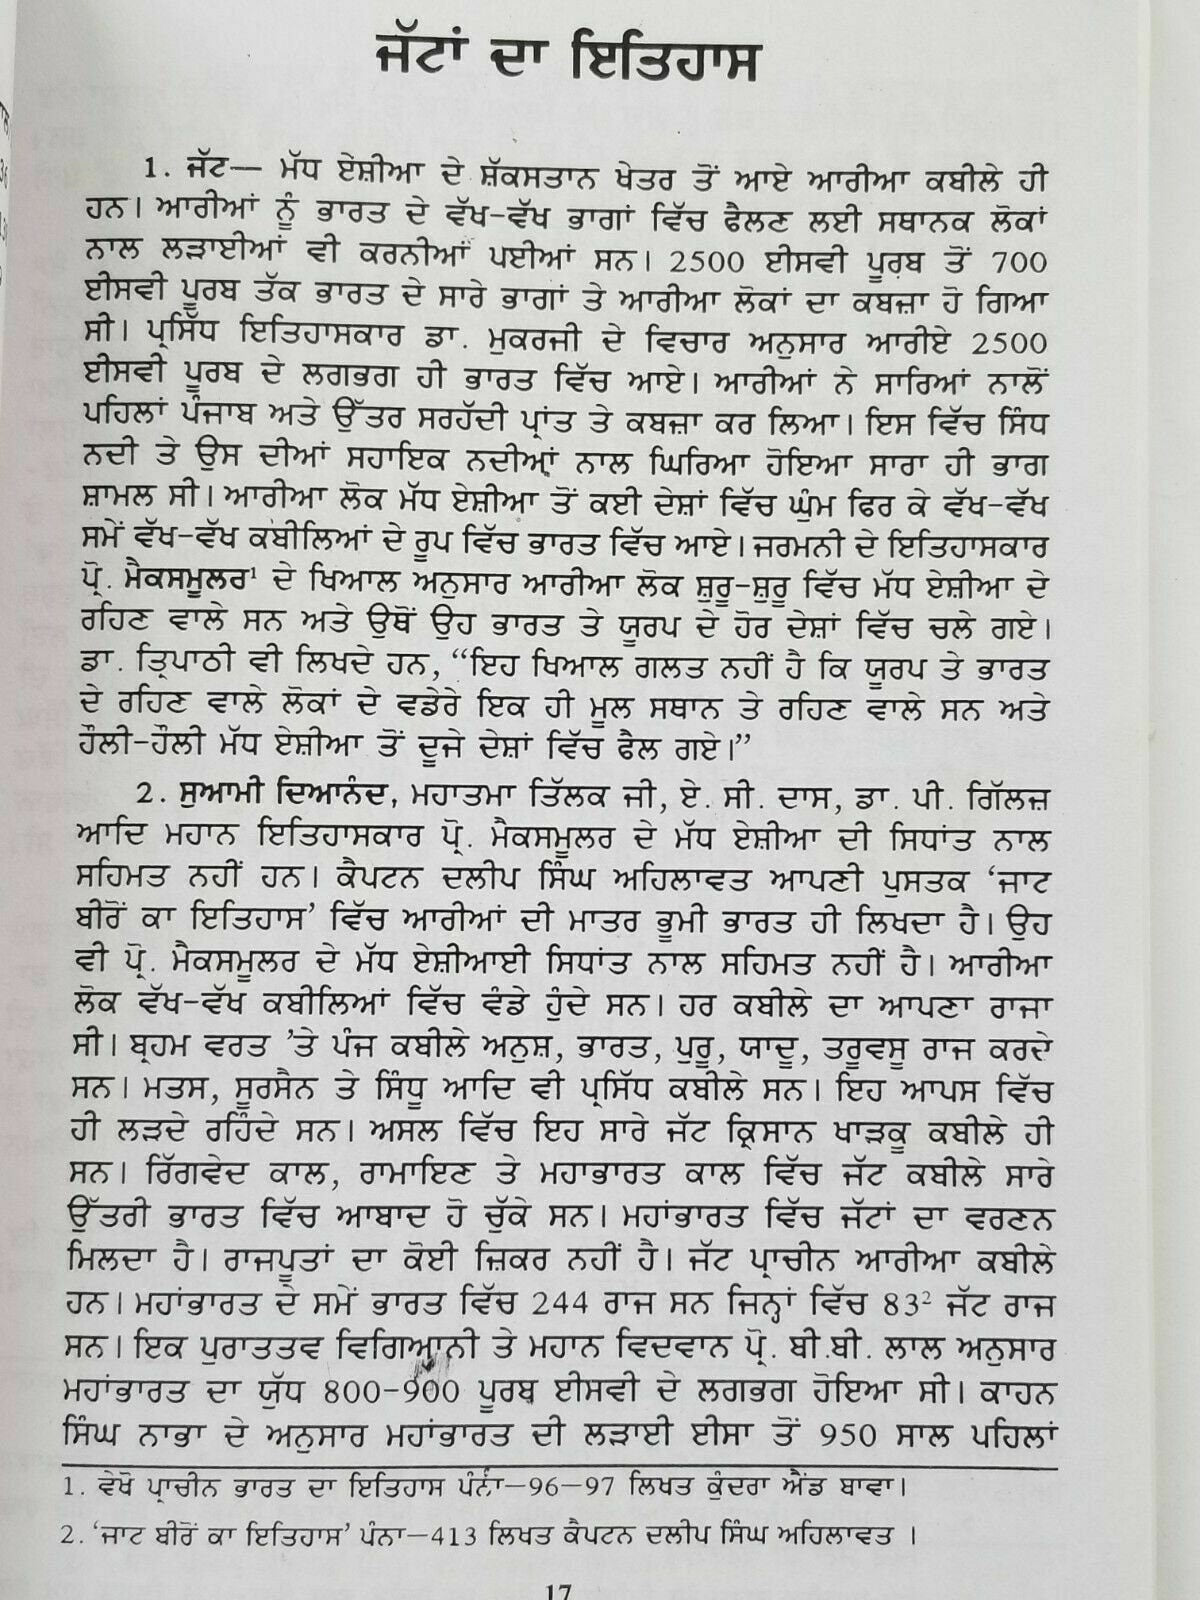 ਜੱਟਾਂ ਦਾ ਇਤਿਹਾਸ
1. ਜੱਟ— ਮੱਧ ਏਸ਼ੀਆ ਦੇ ਸ਼ੱਕਸਤਾਨ ਖੇਤਰ ਤੋਂ ਆਏ ਆਰੀਆ ਕਬੀਲੇ ਹੀ
ਹਨ। ਆਰੀਆਂ ਨੂੰ ਭਾਰਤ ਦੇ ਵੱਖ-ਵੱਖ ਭਾਗਾਂ ਵਿੱਚ ਫੈਲਣ ਲਈ ਸਥਾਨਕ ਲੋਕਾਂ
ਨਾਲ ਲੜਾਈਆਂ ਵੀ ਕਰਨੀਆਂ ਪਈਆਂ ਸਨ। 2500 ਈਸਵੀ ਪੂਰਬ ਤੋਂ 700
ਈਸਵੀ ਪੂਰਬ ਤੱਕ ਭਾਰਤ ਦੇ ਸਾਰੇ ਭਾਗਾਂ ਤੇ ਆਰੀਆ ਲੋਕਾਂ ਦਾ ਕਬਜ਼ਾ ਹੋ ਗਿਆ
ਸੀ। ਪ੍ਰਸਿੱਧ ਇਤਿਹਾਸਕਾਰ ਡਾ. ਮੁਕਰਜੀ ਦੇ ਵਿਚਾਰ ਅਨੁਸਾਰ ਆਰੀਏ 2500
ਈਸਵੀ ਪੂਰਬ ਦੇ ਲਗਭਗ ਹੀ ਭਾਰਤ ਵਿੱਚ ਆਏ। ਆਰੀਆਂ ਨੇ ਸਾਰਿਆਂ ਨਾਲੋਂ
ਪਹਿਲਾਂ ਪੰਜਾਬ ਅਤੇ ਉੱਤਰ ਸਰਹੱਦੀ ਪ੍ਰਾਂਤ ਤੇ ਕਬਜ਼ਾ ਕਰ ਲਿਆ। ਇਸ ਵਿੱਚ ਸਿੰਧ
ਨਦੀ ਤੇ ਉਸ ਦੀਆਂ ਸਹਾਇਕ ਨਦੀਆਂ ਨਾਲ ਘਿਰਿਆ ਹੋਇਆ ਸਾਰਾ ਹੀ ਭਾਗ
ਸ਼ਾਮਲ ਸੀ। ਆਰੀਆ ਲੋਕ ਮੱਧ ਏਸ਼ੀਆ ਤੋਂ ਕਈ ਦੇਸ਼ਾਂ ਵਿੱਚ ਘੁੰਮ ਫਿਰ ਕੇ ਵੱਖ-ਵੱਖ
ਸਮੇਂ ਵੱਖ-ਵੱਖ ਕਬੀਲਿਆਂ ਦੇ ਰੂਪ ਵਿੱਚ ਭਾਰਤ ਵਿੱਚ ਆਏ। ਜਰਮਨੀ ਦੇ ਇਤਿਹਾਸਕਾਰ
ਪ੍ਰੋ. ਮੈਕਸਮੂਲਰ¹ ਦੇ ਖਿਆਲ ਅਨੁਸਾਰ ਆਰੀਆ ਲੋਕ ਸ਼ੁਰੂ-ਸ਼ੁਰੂ ਵਿੱਚ ਮੱਧ ਏਸ਼ੀਆ ਦੇ
ਰਹਿਣ ਵਾਲੇ ਸਨ ਅਤੇ ਉਥੋਂ ਉਹ ਭਾਰਤ ਤੇ ਯੂਰਪ ਦੇ ਹੋਰ ਦੇਸ਼ਾਂ ਵਿੱਚ ਚਲੇ ਗਏ।
ਡਾ. ਤ੍ਰਿਪਾਠੀ ਵੀ ਲਿਖਦੇ ਹਨ, “ਇਹ ਖਿਆਲ ਗਲਤ ਨਹੀਂ ਹੈ ਕਿ ਯੂਰਪ ਤੇ ਭਾਰਤ
ਦੇ ਰਹਿਣ ਵਾਲੇ ਲੋਕਾਂ ਦੇ ਵਡੇਰੇ ਇਕ ਹੀ ਮੂਲ ਸਥਾਨ ਤੇ ਰਹਿਣ ਵਾਲੇ ਸਨ ਅਤੇ
ਹੌਲੀ-ਹੌਲੀ ਮੱਧ ਏਸ਼ੀਆ ਤੋਂ ਦੂਜੇ ਦੇਸ਼ਾਂ ਵਿੱਚ ਫੈਲ ਗਏ।”
2. ਸੁਆਮੀ ਦਿਆਨੰਦ, ਮਹਾਤਮਾ ਤਿੱਲਕ ਜੀ, ਏ. ਸੀ. ਦਾਸ, ਡਾ. ਪੀ. ਗਿੱਲਜ਼
ਆਦਿ ਮਹਾਨ ਇਤਿਹਾਸਕਾਰ ਪ੍ਰੋ. ਮੈਕਸਮੂਲਰ ਦੇ ਮੱਧ ਏਸ਼ੀਆ ਦੀ ਸਿਧਾਂਤ ਨਾਲ
ਸਹਿਮਤ ਨਹੀਂ ਹਨ। ਕੈਪਟਨ ਦਲੀਪ ਸਿੰਘ ਅਹਿਲਾਵਤ ਆਪਣੀ ਪੁਸਤਕ ‘ਜਾਟ
ਬੀਰੋਂ ਕਾ ਇਤਿਹਾਸ’ ਵਿੱਚ ਆਰੀਆਂ ਦੀ ਮਾਤਰ ਭੂਮੀ ਭਾਰਤ ਹੀ ਲਿਖਦਾ ਹੈ। ਉਹ
ਵੀ ਪ੍ਰੋ. ਮੈਕਸਮੂਲਰ ਦੇ ਮੱਧ ਏਸ਼ੀਆਈ ਸਿਧਾਂਤ ਨਾਲ ਸਹਿਮਤ ਨਹੀਂ ਹੈ। ਆਰੀਆ
ਲੋਕ ਵੱਖ-ਵੱਖ ਕਬੀਲਿਆਂ ਵਿੱਚ ਵੰਡੇ ਹੁੰਦੇ ਸਨ। ਹਰ ਕਬੀਲੇ ਦਾ ਆਪਣਾ ਰਾਜਾ
ਸੀ। ਬ੍ਰਹਮ ਵਰਤ ’ਤੇ ਪੰਜ ਕਬੀਲੇ ਅਨੁਸ਼, ਭਾਰਤ, ਪੁਰੂ, ਯਾਦੂ, ਤਰੂਵਸੂ ਰਾਜ ਕਰਦੇ
ਸਨ। ਮਤਸ, ਸੂਰਸੈਨ ਤੇ ਸਿੰਧੂ ਆਦਿ ਵੀ ਪ੍ਰਸਿੱਧ ਕਬੀਲੇ ਸਨ। ਇਹ ਆਪਸ ਵਿੱਚ
ਹੀ ਲੜਦੇ ਰਹਿੰਦੇ ਸਨ। ਅਸਲ ਵਿੱਚ ਇਹ ਸਾਰੇ ਜੱਟ ਕ੍ਰਿਸਾਨ ਖਾੜਕੂ ਕਬੀਲੇ ਹੀ
ਸਨ। ਰਿੱਗਵੇਦ ਕਾਲ, ਰਾਮਾਇਣ ਤੇ ਮਹਾਭਾਰਤ ਕਾਲ ਵਿੱਚ ਜੱਟ ਕਬੀਲੇ ਸਾਰੇ
ਉੱਤਰੀ ਭਾਰਤ ਵਿੱਚ ਆਬਾਦ ਹੋ ਚੁੱਕੇ ਸਨ। ਮਹਾਂਭਾਰਤ ਵਿੱਚ ਜੱਟਾਂ ਦਾ ਵਰਣਨ
ਮਿਲਦਾ ਹੈ। ਰਾਜਪੂਤਾਂ ਦਾ ਕੋਈ ਜ਼ਿਕਰ ਨਹੀਂ ਹੈ। ਜੱਟ ਪ੍ਰਾਚੀਨ ਆਰੀਆ ਕਬੀਲੇ
ਹਨ। ਮਹਾਂਭਾਰਤ ਦੇ ਸਮੇਂ ਭਾਰਤ ਵਿੱਚ 244 ਰਾਜ ਸਨ ਜਿਨ੍ਹਾਂ ਵਿੱਚ 83² ਜੱਟ ਰਾਜ
ਸਨ। ਇਕ ਪੁਰਾਤਤਵ ਵਿਗਿਆਨੀ ਤੇ ਮਹਾਨ ਵਿਦਵਾਨ ਪ੍ਰੋ. ਬੀ.ਬੀ. ਲਾਲ ਅਨੁਸਾਰ
ਮਹਾਂਭਾਰਤ ਦਾ ਯੁੱਧ 800-900 ਪੂਰਬ ਈਸਵੀ ਦੇ ਲਗਭਗ ਹੋਇਆ ਸੀ। ਕਾਹਨ
ਸਿੰਘ ਨਾਭਾ ਦੇ ਅਨੁਸਾਰ ਮਹਾਂਭਾਰਤ ਦੀ ਲੜਾਈ ਈਸਾ ਤੋਂ 950 ਸਾਲ ਪਹਿਲਾਂ
1. ਵੇਖੋ ਪ੍ਰਾਚੀਨ ਭਾਰਤ ਦਾ ਇਤਿਹਾਸ ਪੰਨਾ—96—97 ਲਿਖਤ ਕੁੰਦਰਾ ਐਂਡ ਬਾਵਾ।
2. ‘ਜਾਟ ਬੀਰੋਂ ਕਾ ਇਤਿਹਾਸ’ ਪੰਨਾ—413 ਲਿਖਤ ਕੈਪਟਨ ਦਲੀਪ ਸਿੰਘ ਅਹਿਲਾਵਤ ।
17